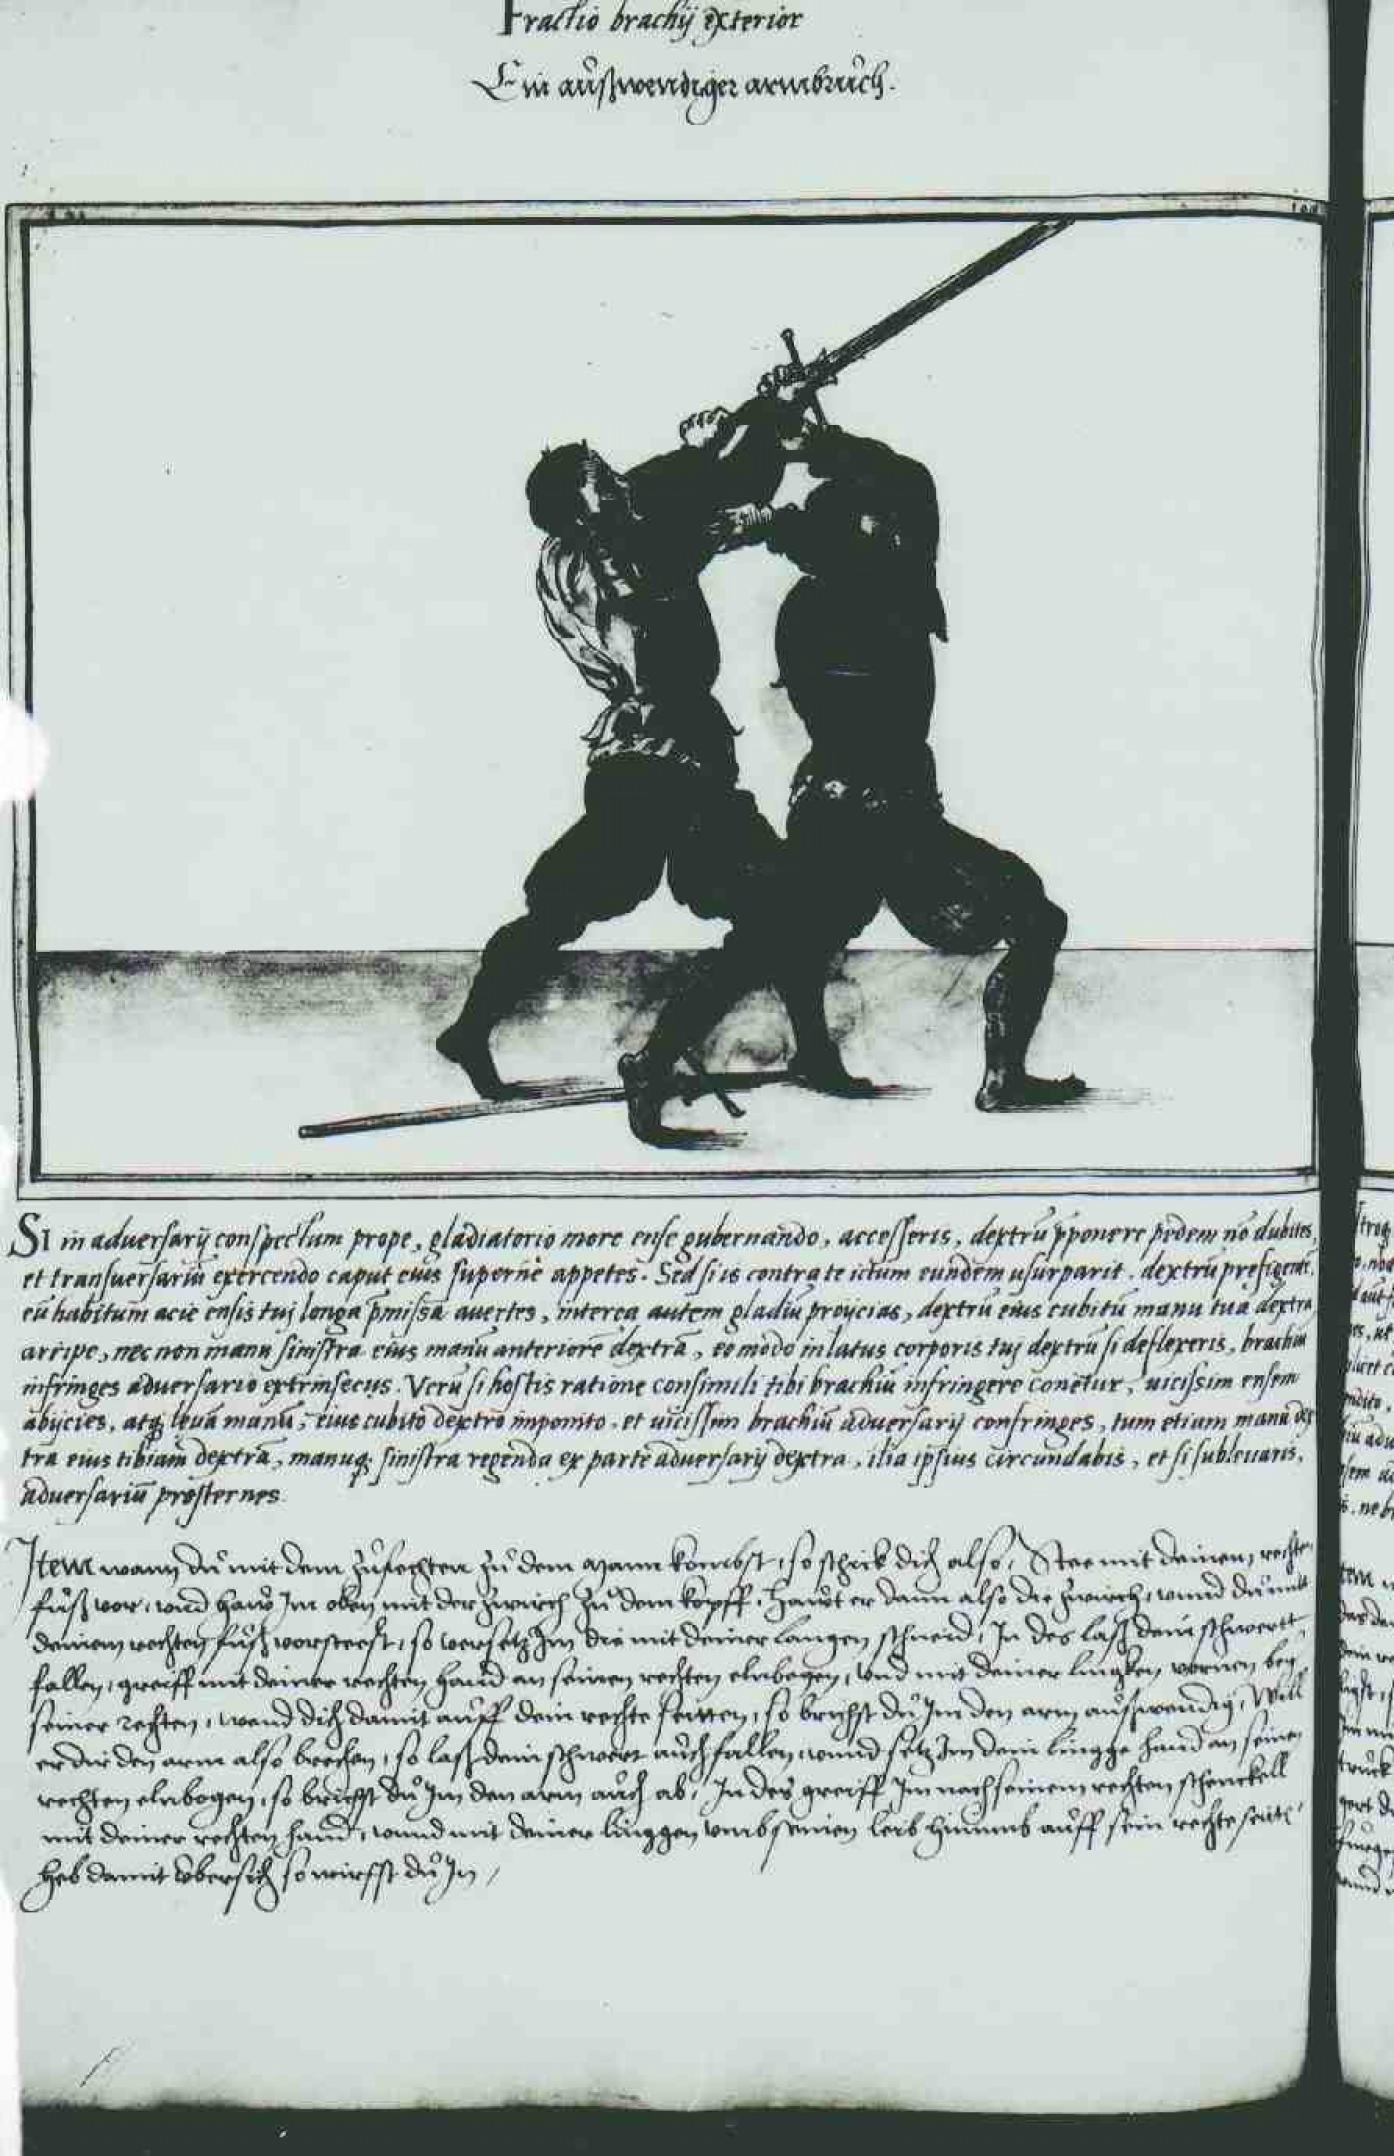 Fractio brachÿ exterior
Ein außwendiger armbruch.
SI in adversarÿ conspectum prope, gladiatorio more ense gubernando, accesseris, dextrũ p̱ponere pedem nõ dubites,
et transversariũ exercendo caput eius supernè appetes. Sed si is contra te ictum eundem usurparit, dextrũ prefigente,
eũ habitum acie ensis tuj longa p̃missa avertes, interea autem gladiũ proÿcias, dextrũ eius cubitũ manu tua dextra
arripe, nec non manu sinistra eius manũ anteriorẽ dextrã, eo modo in latus corporis tuj dextrũ si deflexeris, brachiũ
infringes adversario extrinsecus. Verũ si hostis ratione consimili tibi brachiũ infringere conetur, vicissim ensem
abÿcies, atq̃ levã manũ, eius cubito dextro imponito, et vicissim brachiũ adversarÿ confringes, tum etiam manu dex
tra eius tibiam dextrã, manuq̃ sinistra regenda ex parte adversarÿ dextra, ilia ipsius circundabis, et si sublevaris,
adversariũ prosternes.
Item wann du mit dem zufechten zu dem Mann kombst, so schick dich also, Stee mit deinem rechten
fuß vor, und haw Im oben mit der zwirch zu dem kopff, Hawt er dann also die zwirch, unnd du mitt
deinem rechten fuß vorsteest, so versetz Im die mit deiner langen schneid, In des laß dein schwertt
fallen, greiff mit deiner rechten hand an seinen rechten elnbogen, und mit deiner lingken vornen bey
seiner rechten, wend dich damit auff dein rechte seitten, so brichst du Im den arm außwendig, Will
er dir den arm also brechen, so laß dein schwert auch fallen, unnd setz Im dein lingge hand an seinen
rechten elnbogen, so brichst du Im den arm auch ab, In des greiff Im nach seinem rechten schenckell
mit deiner rechten hand, unnd mit deiner linggen umb seinen leib hinumb auff sein rechte seitt,
heb damit übersich so wirfst du In,